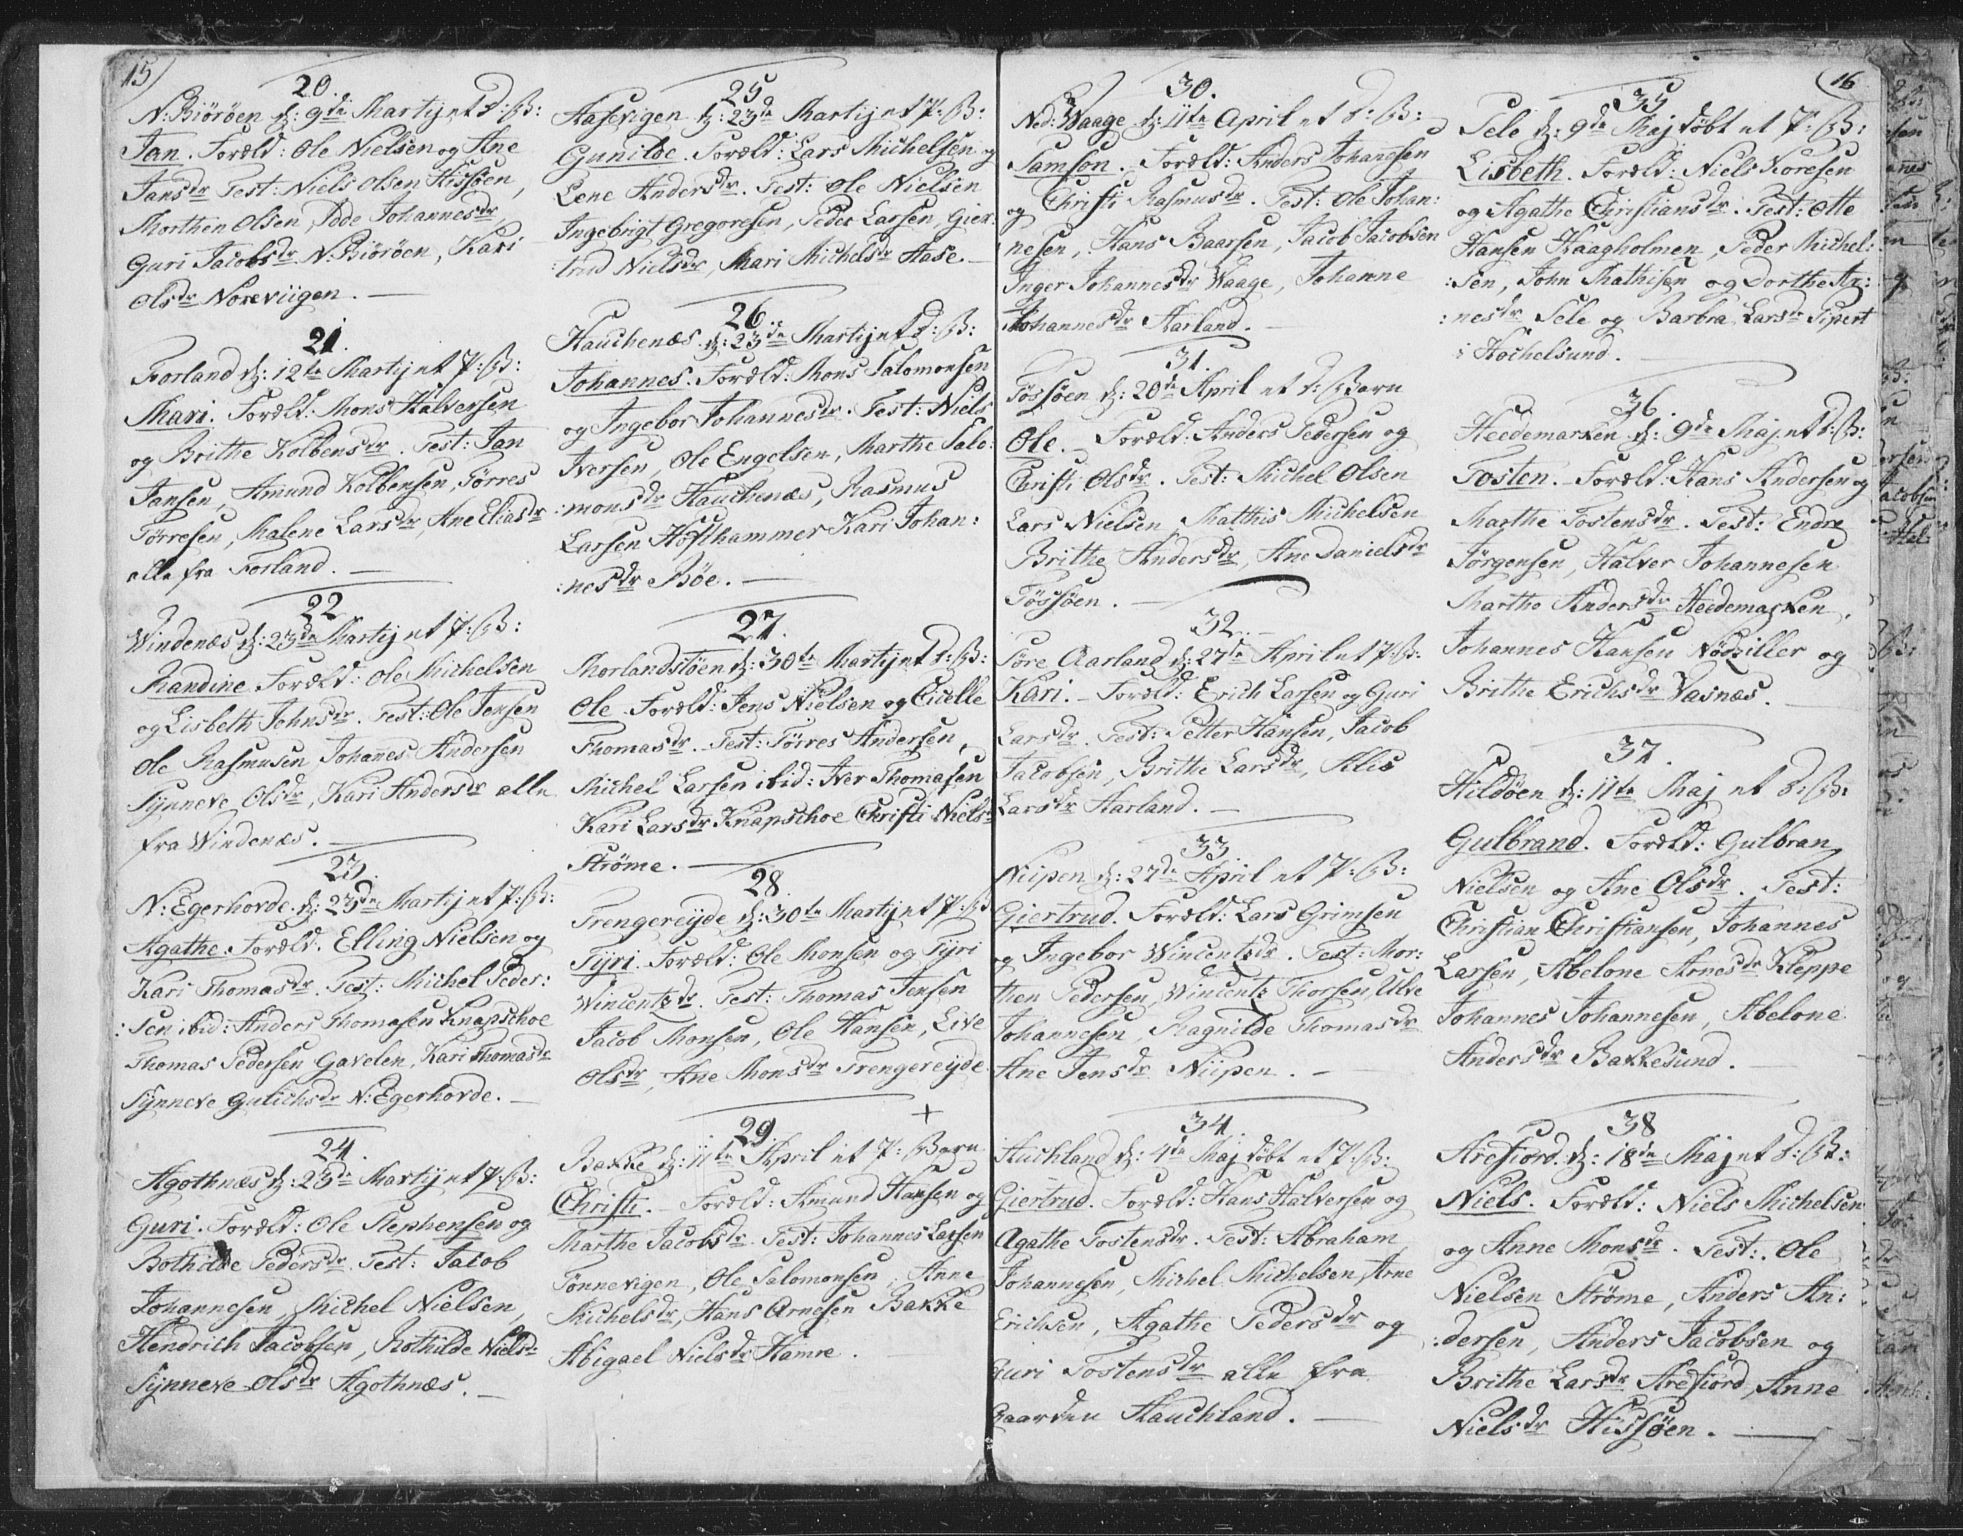 15)
20.
N: Biöröen d: 9de Martij et d: B:
Jan. Foræld: Ole Nielsen og Ane
Jansdr Test: Niels Olsen Hissöen,
Morthen Olsen, Johannesdr,
Guri Jacobsdr N. Biöröen, Kari
Olsdr Noreviigen.
21.
Forland d: 12te Martij et P: B:
Mari. Foræld: Mons Halversen
og Brithe Kolbensdr. Test: Jan
Jansen, Amund Kolbensen, Törres
Törresen, Malene Larsdr, Ane Eliasdr
alle fra Forland.
22
Windenæs d: 23de Martij et P: B:
Randine Foræld: Ole Michelsen
og Lisbeth Johnsdr. Test: Ole Jensen
Ole Rasmusen Johannes Andersen
Synneve Olsdr, Kari Andersdr alle
fra Windenæs.
23.
N: Egerhovde d: 23de Martij et P: B:
Agathe. Foræld. Elling Nielsen og
Kari Thomasdr. Test: Michel Peder:
:sen ibid: Anders Thomasen Knapschoe
Thomas Pedersen Gavelen, Kari Thomasdr
Synneve Gulichsdr N: Egerhovde.
24.
Agothnæs d: 23de Martij et P: B:
Guri. Foræld: Ole Stephensen og
Bothilde Pedersdr. Test: Jacob
Johannesen, Michel Nielsen,
Hendrich Jacobsen, Bothilde Nielsdr
Synneve Olsdr Agothnæs.
25
Hasevigen d: 23de Martij et P: B:
Gunilde. Foræld: Lars Michelsen og
Lene Andersdr. Test: Ole Nielsen
Ingebrigt Gregoresen, Peder Larsen, Gier:
:trud Nielsdr, Mari Michelsdr Hase.
26.
Hauchenæs d: 23de Martij et d: B:
Johannes. Foræld: Mons Salomonsen
og Ingebor Johannesdr. Test: Niels
Iversen, Ole Engelsen, Marthe Salo:
:monsdr Hauchenæs, Rasmus
Larsen Hofthammer Kari Johan:
:nesdr Böe.
27.
Morlandstöen d: 30te Martij et d: B:
Ole. Foræld: Jens Nielsen og Cicelle
Thomasdr. Test: Törres Andersen,
Michel Larsen ibid: Iver Thomasen
Kari Larsdr Knapschoe Christi Nielsdr
Ströme.
28.
Trengereijde d: 30te Martij et P: B
Tyri. Foræld: Ole Monsen og Tyri
Wincentzdr. Test: Thomas Jensen
Jacob Monsen, Ole Hansen, Live
Olsdr, Ane Monsdr Trengereijde
29. +
Bakke d: 11te April et P: Barn
Christi. Foræld: Amund Hansen og
Marthe Jacobsdr. Test: Johannes Larsen
Tönnevigen, Ole Salomonsen, Anne
Michelsdr, Hans Arnesen Bakke
Abigael Nielsdr Hamre.
30.
Ned: Waage d: 11te April et d: B:
Samson. Foræld: Anders Johannesen
og Christi Rasmusdr. Test: Ole Johan:
:nesen, Hans Baarsen, Jacob Jacobsen
Inger Johannesdr Waage, Johanne
Johannesdr Aarland.
31.
Tössöen d: 20de April et d: Barn
Ole. Foræld: Anders Pedersen og
Christi Olsdr. Test: Michel Olsen
Lars Nielsen Matthis Michelsen
Brithe Andersdr, Ane Danielsdr
Tössöen.
32.
Söre Aarland d: 27de April et P: B:
Kari. Foræld: Erich Larsen og Guri
Larsdr. Test: Petter Hansen, Jacob
Jacobsen, Brithe Larsdr, Alis
Larsdr Aarland.
33
Niipen d: 27de April et P: B:
Giertrud. Foræld: Lars Grimsen
og Ingebor Wincentzdr. Test: Mor:
then Pedersen, Wincentz Thorsen, Ulve
Johannesen, Magnilde Thomasdr
Ane Jensdr Niipen.
34.
Auchland d: 4de Maj döbt et P: B:
Giertrud. Foræld: Hans Halversen og
Agathe Tostensdr. Test: Abraham
Johannesen, Michel Michelsen, Arne
Erichsen, Agathe Pedersdr og
Guri Tostensdr alle fra
Gaarden Hauchland.
16
35
Sele d: 9de Maj döbt et P: B:
Lisbeth. Foræld: Niels Koresen
og Agathe Christiansdr. Test: Otte
Hansen Haagholmen, Peder Michel:
:sen, John Mathisen og Dorthe Ar:
:nesdr Sele og Barbra Larsdr Sipert
i Kochelsund.
36.
Heedemarken d: 9de Maj et d: B:
Tosten. Foræld: Hans Andersen og
Marthe Tostensdr. Test: Endre
Jörgensen, Halver Johannesen
Marthe Andersdr Heedemarken,
Johannes Hansen Nödziller og
Brithe Erichsdr Vasnæs.
37.
Hildöen d: 11te Maj et d: B:
Gulbrand. Foræld: Gulbran
Nielsen og Ane Olsdr. Test:
Christian Christiansen, Johannes
Larsen, Abelone Arnesdr Kleppe
Johannes Johannesen, Abelone
Andersdr Bakkesund.
38
Arefiord d: 18de Maj et d: B:
Niels. Foræld: Niels Michelsen
og Anne Monsdr. Test: Ole
Nielsen Ströme, Anders An:
:dersen, Anders Jacobsen og
Brithe Larsdr Arefiord, Anne
Nielsdr Hissöen.